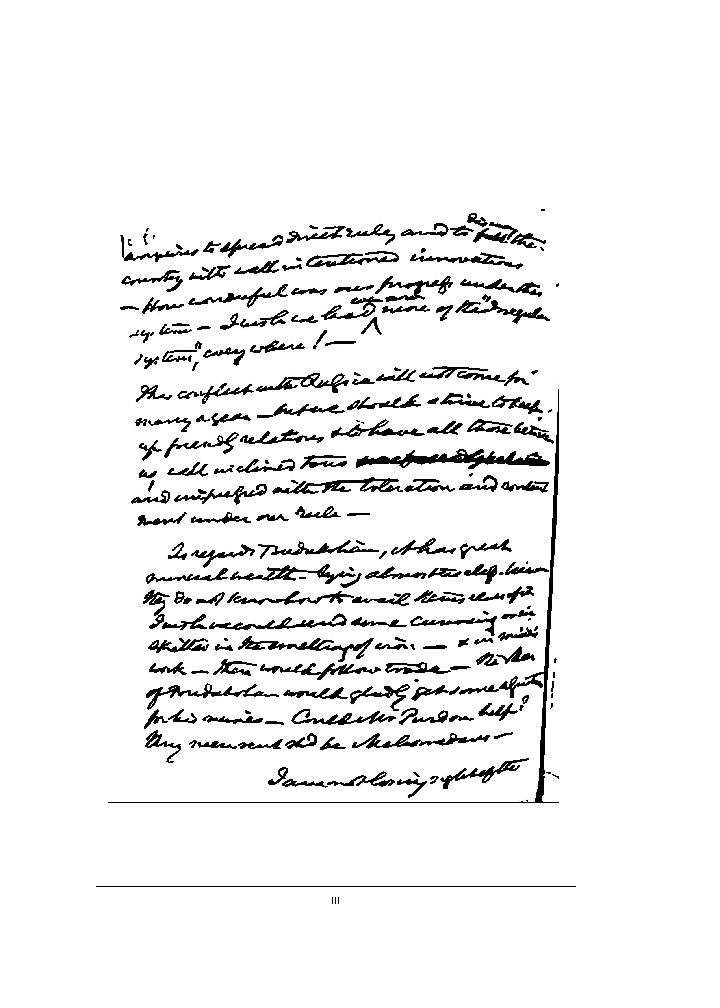 to spread direct rule, and to the
country with well intentioned innovations
— How wonderful was our progress under the
system — I wish we had more of the "Irregular
system", every where! —
The conflict with will not come for
many a year — but we should strive to keep
up friendly relations & to have all those between
us well inclined to us
and impressed with the toleration and content
ment under our Rule —
As regards Budakshan, it has great
mineral wealth — lying almost useless, because
they do not know how to avail themselves of it
I wish we could send some cunning men
skilled in the smelting of iron — & in mines
work — there would follow trade — The
of Budakshan would gladly get some
for his mines — Could Mr Purdon help?
Any men sent shd be Mahomedans —
I am not losing sight of the
III